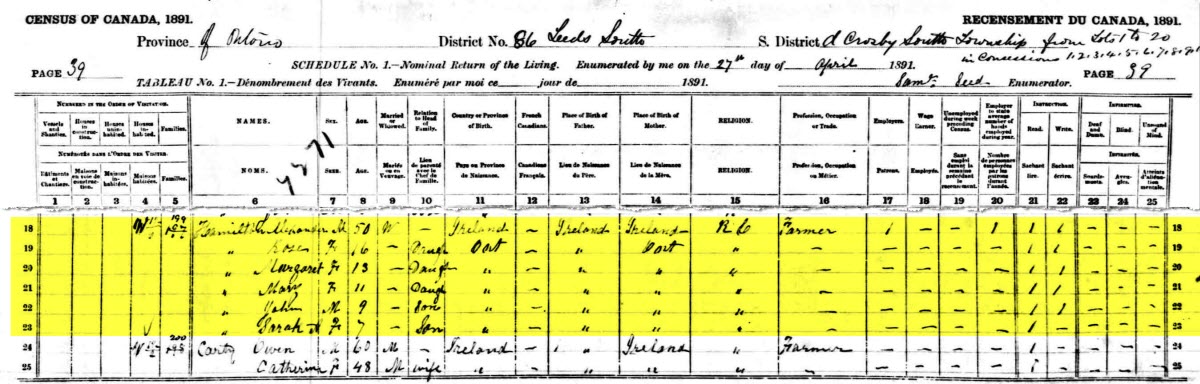 CENSUS OF CANADA, 1891. RECENSEMENT DU CANADA, 1891.
Province of Ontario District No. 86 Leeds South S. District d Crosby South Township from Lots 1 to 20
in Concessions 1-2-3-4-5-6-7-8-
SCHEDULE No. 1.—Nominal Return of the Living. Enumerated by me on the 27th day of April 1891.
PAGE 39 PAGE 39
TABLEAU No. 1.—Dénombrement des Vivants. Enuméré par moi ce jour de 1891. Enumerator.
NUMBERED IN THE ORDER OF VISITATION.
Vessels and Shanties. Houses in construction. Houses uninhabited. Houses inhabited. Families. NAMES. Sex. Age. Married or Widowed. Relation to Head of Family. Country or Province of Birth. French Canadians. Place of Birth of Father. Place of Birth of Mother. RELIGION. Profession, Occupation or Trade. Employers. Wage Earner. Unemployed during week preceding Census. Employer to state average number of hands employed during year. INSTRUCTION. Read. Write. INFIRMITIES. Deaf and Dumb. Blind. Unsound of Mind.
NUMÉROTÉS DANS L'ORDRE DES VISITES.
Bâtiments et Chantiers. Maisons en voie de construction. Maisons inhabitées. Maisons habitées. Familles. NOMS. Sexe. Age. Marié ou en Veuvage. Lien de parenté avec le Chef de Famille. Pays ou Province de Naissance. Canadiens Français. Lieu de Naissance du Père. Lieu de Naissance de la Mère. RELIGION. Profession, Occupation ou Métier. Patrons. Employés. Sans emploi durant la semaine précédant le recensement. Nombre de personnes employées par les patrons durant l'année. INSTRUCTION. Sachant lire. Sachant écrire. INFIRMITÉS. Sourds-muets. Aveugles. Atteints d'aliénation mentale.
1 2 3 4 5 6 7 8 9 10 11 12 13 14 15 16 17 18 19 20 21 22 23 24 25
18 199 Hamilton Alexander M 50 W – Ireland – Ireland Ireland R C Farmer 1 – – 1 1 1 – – – 18
19 " Rose F 16 – Daug Ont – " Ont " – – – – 1 1 – – – 19
20 " Margaret F 13 – Daug " – " " " – – – – – 1 1 – – – 20
21 " Mary F 11 – Daug " – " " " – – – – – 1 1 – – – 21
22 " John M 9 – Son " – " " " – – – – – 1 1 – – – 22
23 " Sarah F 7 – Son " – " " " – – – – – 1 1 – – – 23
24 200 Carty Owen M 60 M – Ireland – " Ireland " Farmer – – – – 1 – – – – 24
25 " Catherine F 48 M wife " – " " " – – – – – 1 – – – – 25